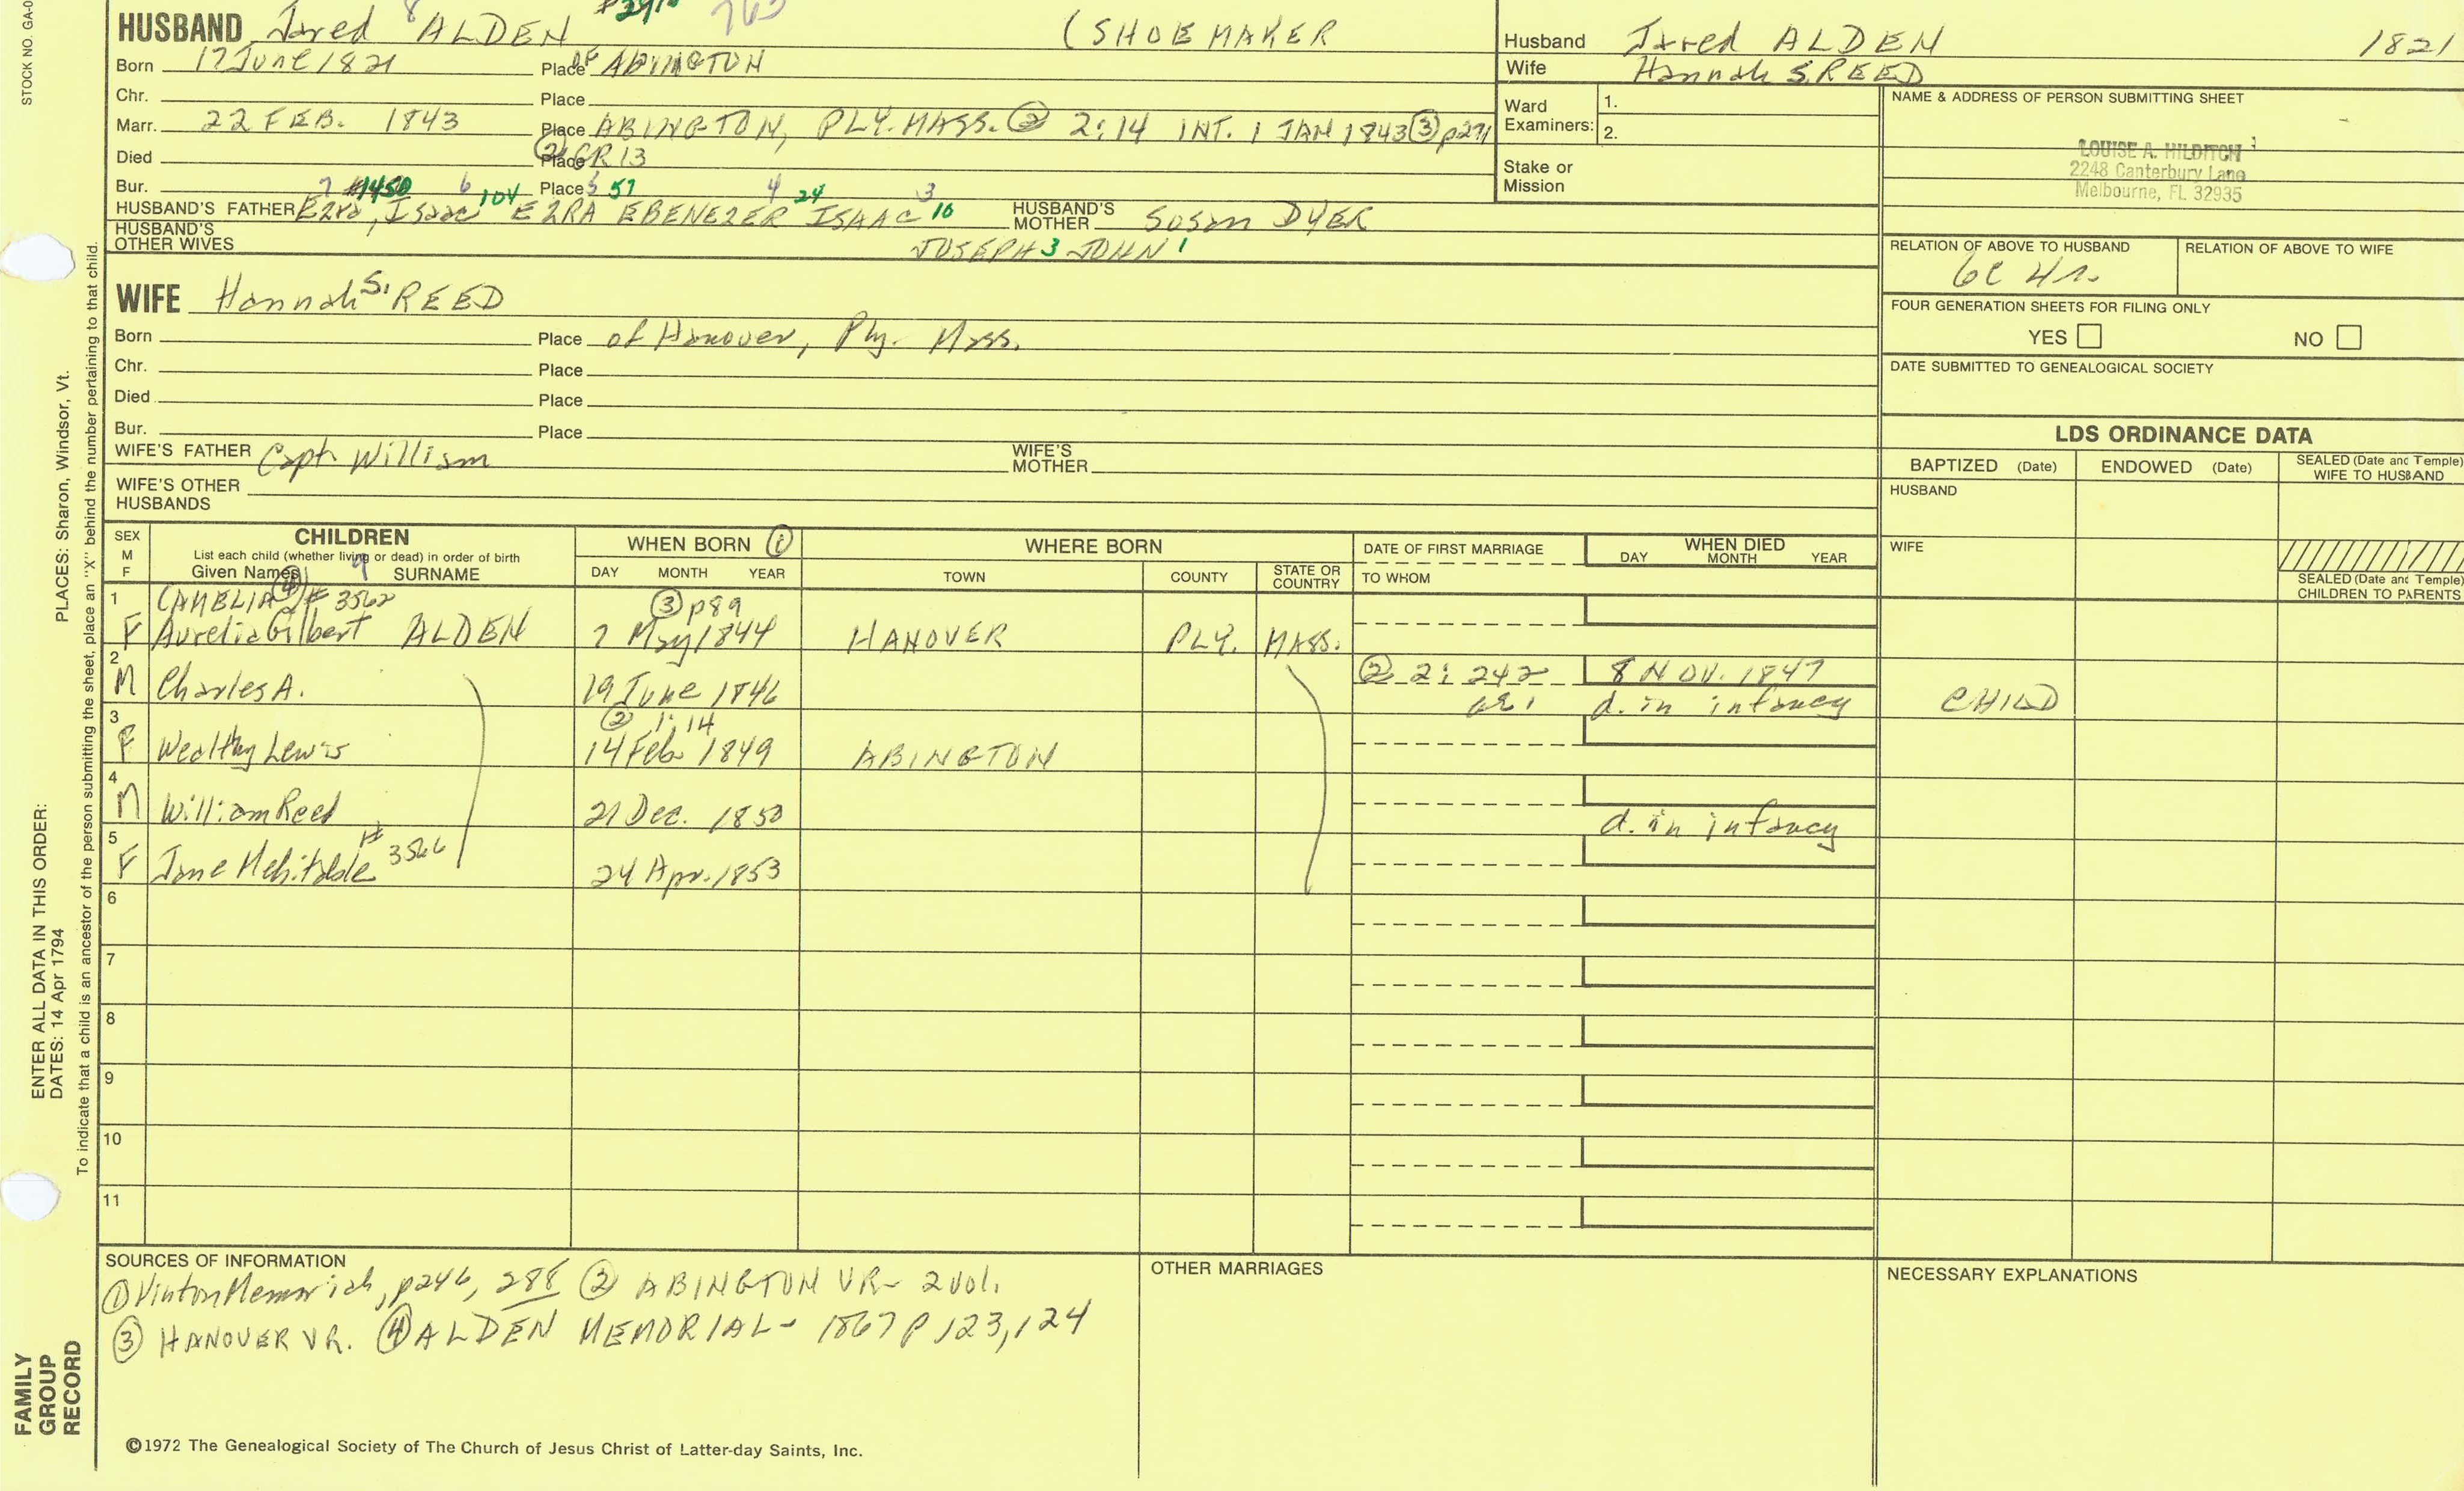 STOCK NO. GA-0
HUSBAND Jared 8 ALDEN 763 (SHOEMAKER
Born 17 June 1821 Place OF ABINGTON
Chr. Place
Marr. 22 FEB. 1843 Place ABINGTON, PLY. MASS. ② 2:14 INT. 1 JAN 1843 ③ p271
Died Place ② GR13
Bur. Place
7 #1450 6 104 5 57 4 24 3
HUSBAND'S FATHER Ezra, Isaac EZRA EBENEZER ISAAC 10 HUSBAND'S MOTHER Susan DYER
HUSBAND'S OTHER WIVES JOSEPH 3 JOHN 1
WIFE Hannah S. REED
Born Place of Hanover, Ply. Mass.
Chr. Place
Died Place
Bur. Place
WIFE'S FATHER Capt. William WIFE'S MOTHER
WIFE'S OTHER HUSBANDS
Husband Jared ALDEN 1821
Wife Hannah S. REED
Ward Examiners: 1. 2.
Stake or Mission
NAME & ADDRESS OF PERSON SUBMITTING SHEET
LOUISE A. HILDITCH
2248 Canterbury Lane
Melbourne, FL 32935
RELATION OF ABOVE TO HUSBAND RELATION OF ABOVE TO WIFE
6C 4r.
FOUR GENERATION SHEETS FOR FILING ONLY
YES NO
DATE SUBMITTED TO GENEALOGICAL SOCIETY
LDS ORDINANCE DATA
BAPTIZED (Date) ENDOWED (Date) SEALED (Date and Temple) WIFE TO HUSBAND
HUSBAND
WIFE
SEALED (Date and Temple) CHILDREN TO PARENTS
SEX M F
CHILDREN
List each child (whether living or dead) in order of birth
Given Names ④ 9 SURNAME
WHEN BORN ①
DAY MONTH YEAR
WHERE BORN
TOWN COUNTY STATE OR COUNTRY
DATE OF FIRST MARRIAGE
TO WHOM
WHEN DIED
DAY MONTH YEAR
1 CAMELIA # 3562 ③ p89
F Aurelia Gilbert ALDEN 7 May 1844 HANOVER PLY. MASS.
2 ② 2:242 8 NOV. 1847
M Charles A. 19 June 1846 d. in infancy CHILD
3 ② 1:14
F Wealthy Lewis 14 Feb. 1849 ABINGTON
4
M William Reed 21 Dec. 1850 d. in infancy
5
F Jane Mehitable # 3566 24 Apr. 1853
6
7
8
9
10
11
SOURCES OF INFORMATION
① Vinton Memorial, p246, 288 ② ABINGTON VR- 2 vol.
③ HANOVER VR. ④ ALDEN MEMORIAL- 1867 P 123, 124
OTHER MARRIAGES
NECESSARY EXPLANATIONS
©1972 The Genealogical Society of The Church of Jesus Christ of Latter-day Saints, Inc.
FAMILY GROUP RECORD
ENTER ALL DATA IN THIS ORDER:
DATES: 14 Apr 1794
PLACES: Sharon, Windsor, Vt.
To indicate that a child is an ancestor of the person submitting the sheet, place an "X" behind the number pertaining to that child.